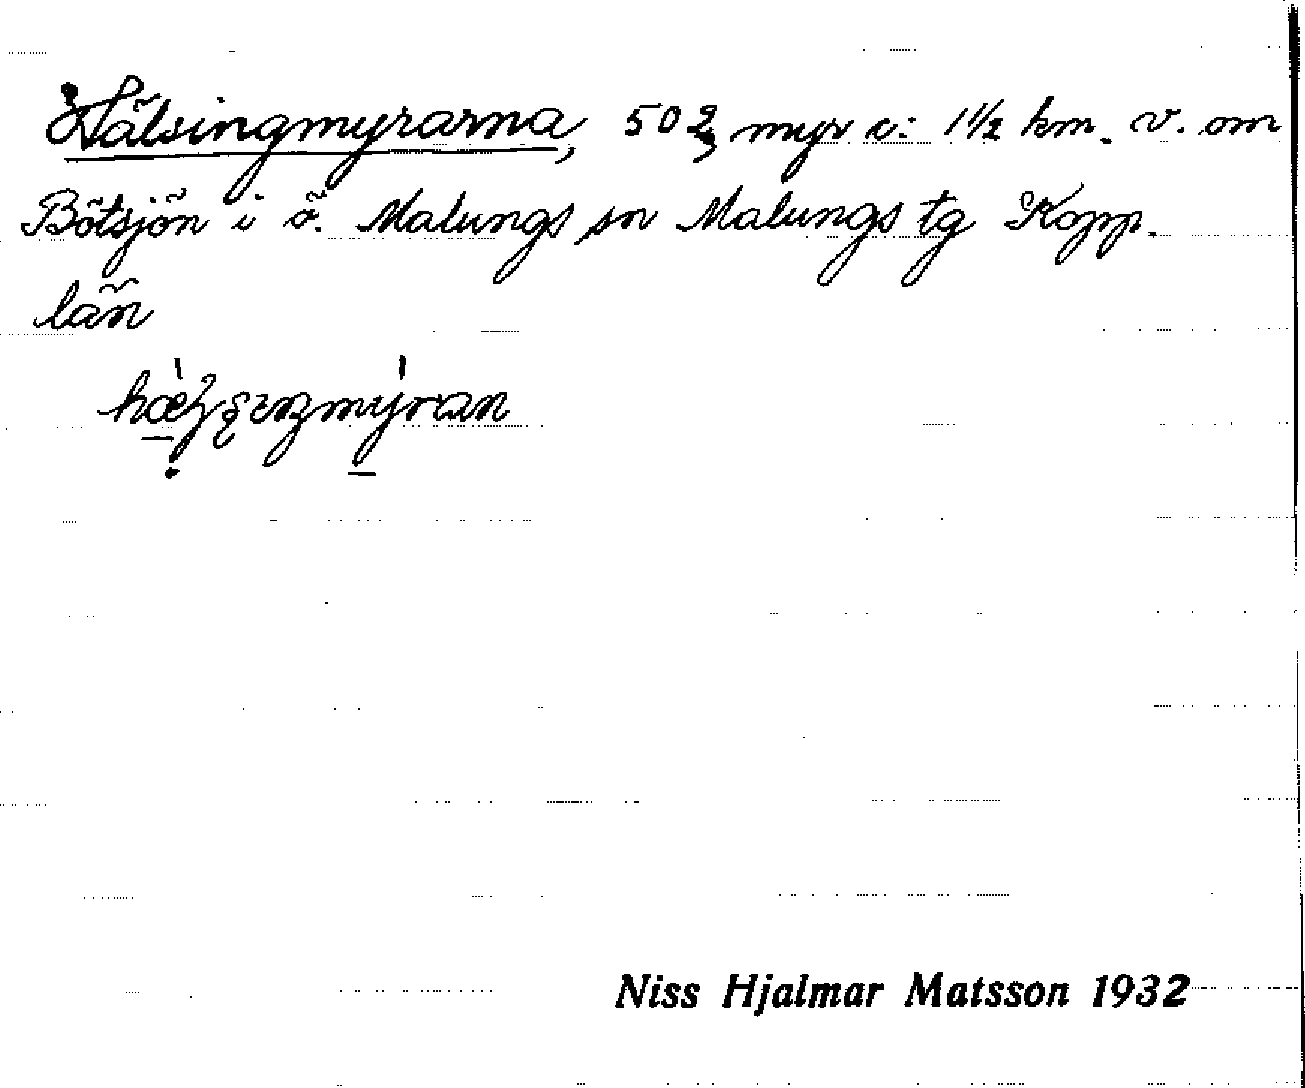 Hälsingmyrarna, 502, myr c: 1 1/2 km. v. om
Bötsjön i ö. Malungs sn Malungs tg Kopp.
län
Niss Hjalmar Matsson 1932